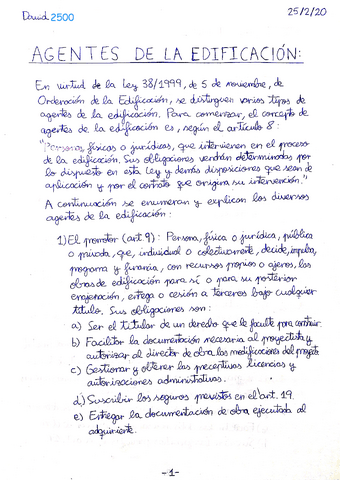 David 2500
25/2/20
AGENTES DE LA EDIFICACIÓN:
En virtud de la Ley 38/1999, de 5 de noviembre, de
Ordenación de la Edificación, se distinguen varios tipos de
agentes de la edificación. Para comenzar, el concepto de
agentes de la edificación es, según el artículo 8:
"Personas, físicas o jurídicas, que intervienen en el proceso
de la edificación. Sus obligaciones vendrán determinadas por
lo dispuesto en esta Ley y demás disposiciones que sean de
aplicación y por el contrato que origina su intervención."
A continuación se enumeran y explican los diversos
agentes de la edificación:
1) El promotor (art. 9): Persona, física o jurídica, pública
o privada, que, individual o colectivamente, decide, impulsa,
programa y financia, con recursos propios o ajenos, las
obras de edificación para sí o para su posterior
enajenación, entrega o cesión a terceros bajo cualquier
título. Sus obligaciones son:
a) Ser el titular de un derecho que le faculte para construir.
b) Facilitar la documentación necesaria al proyectista y
autorizar al director de obra las modificaciones del proyecto
c) Gestionar y obtener las preceptivas licencias y
autorizaciones administrativas.
d) Suscribir los seguros previstos en el art. 19.
e) Entregar la documentación de obra ejecutada al
adquiriente.
-1-